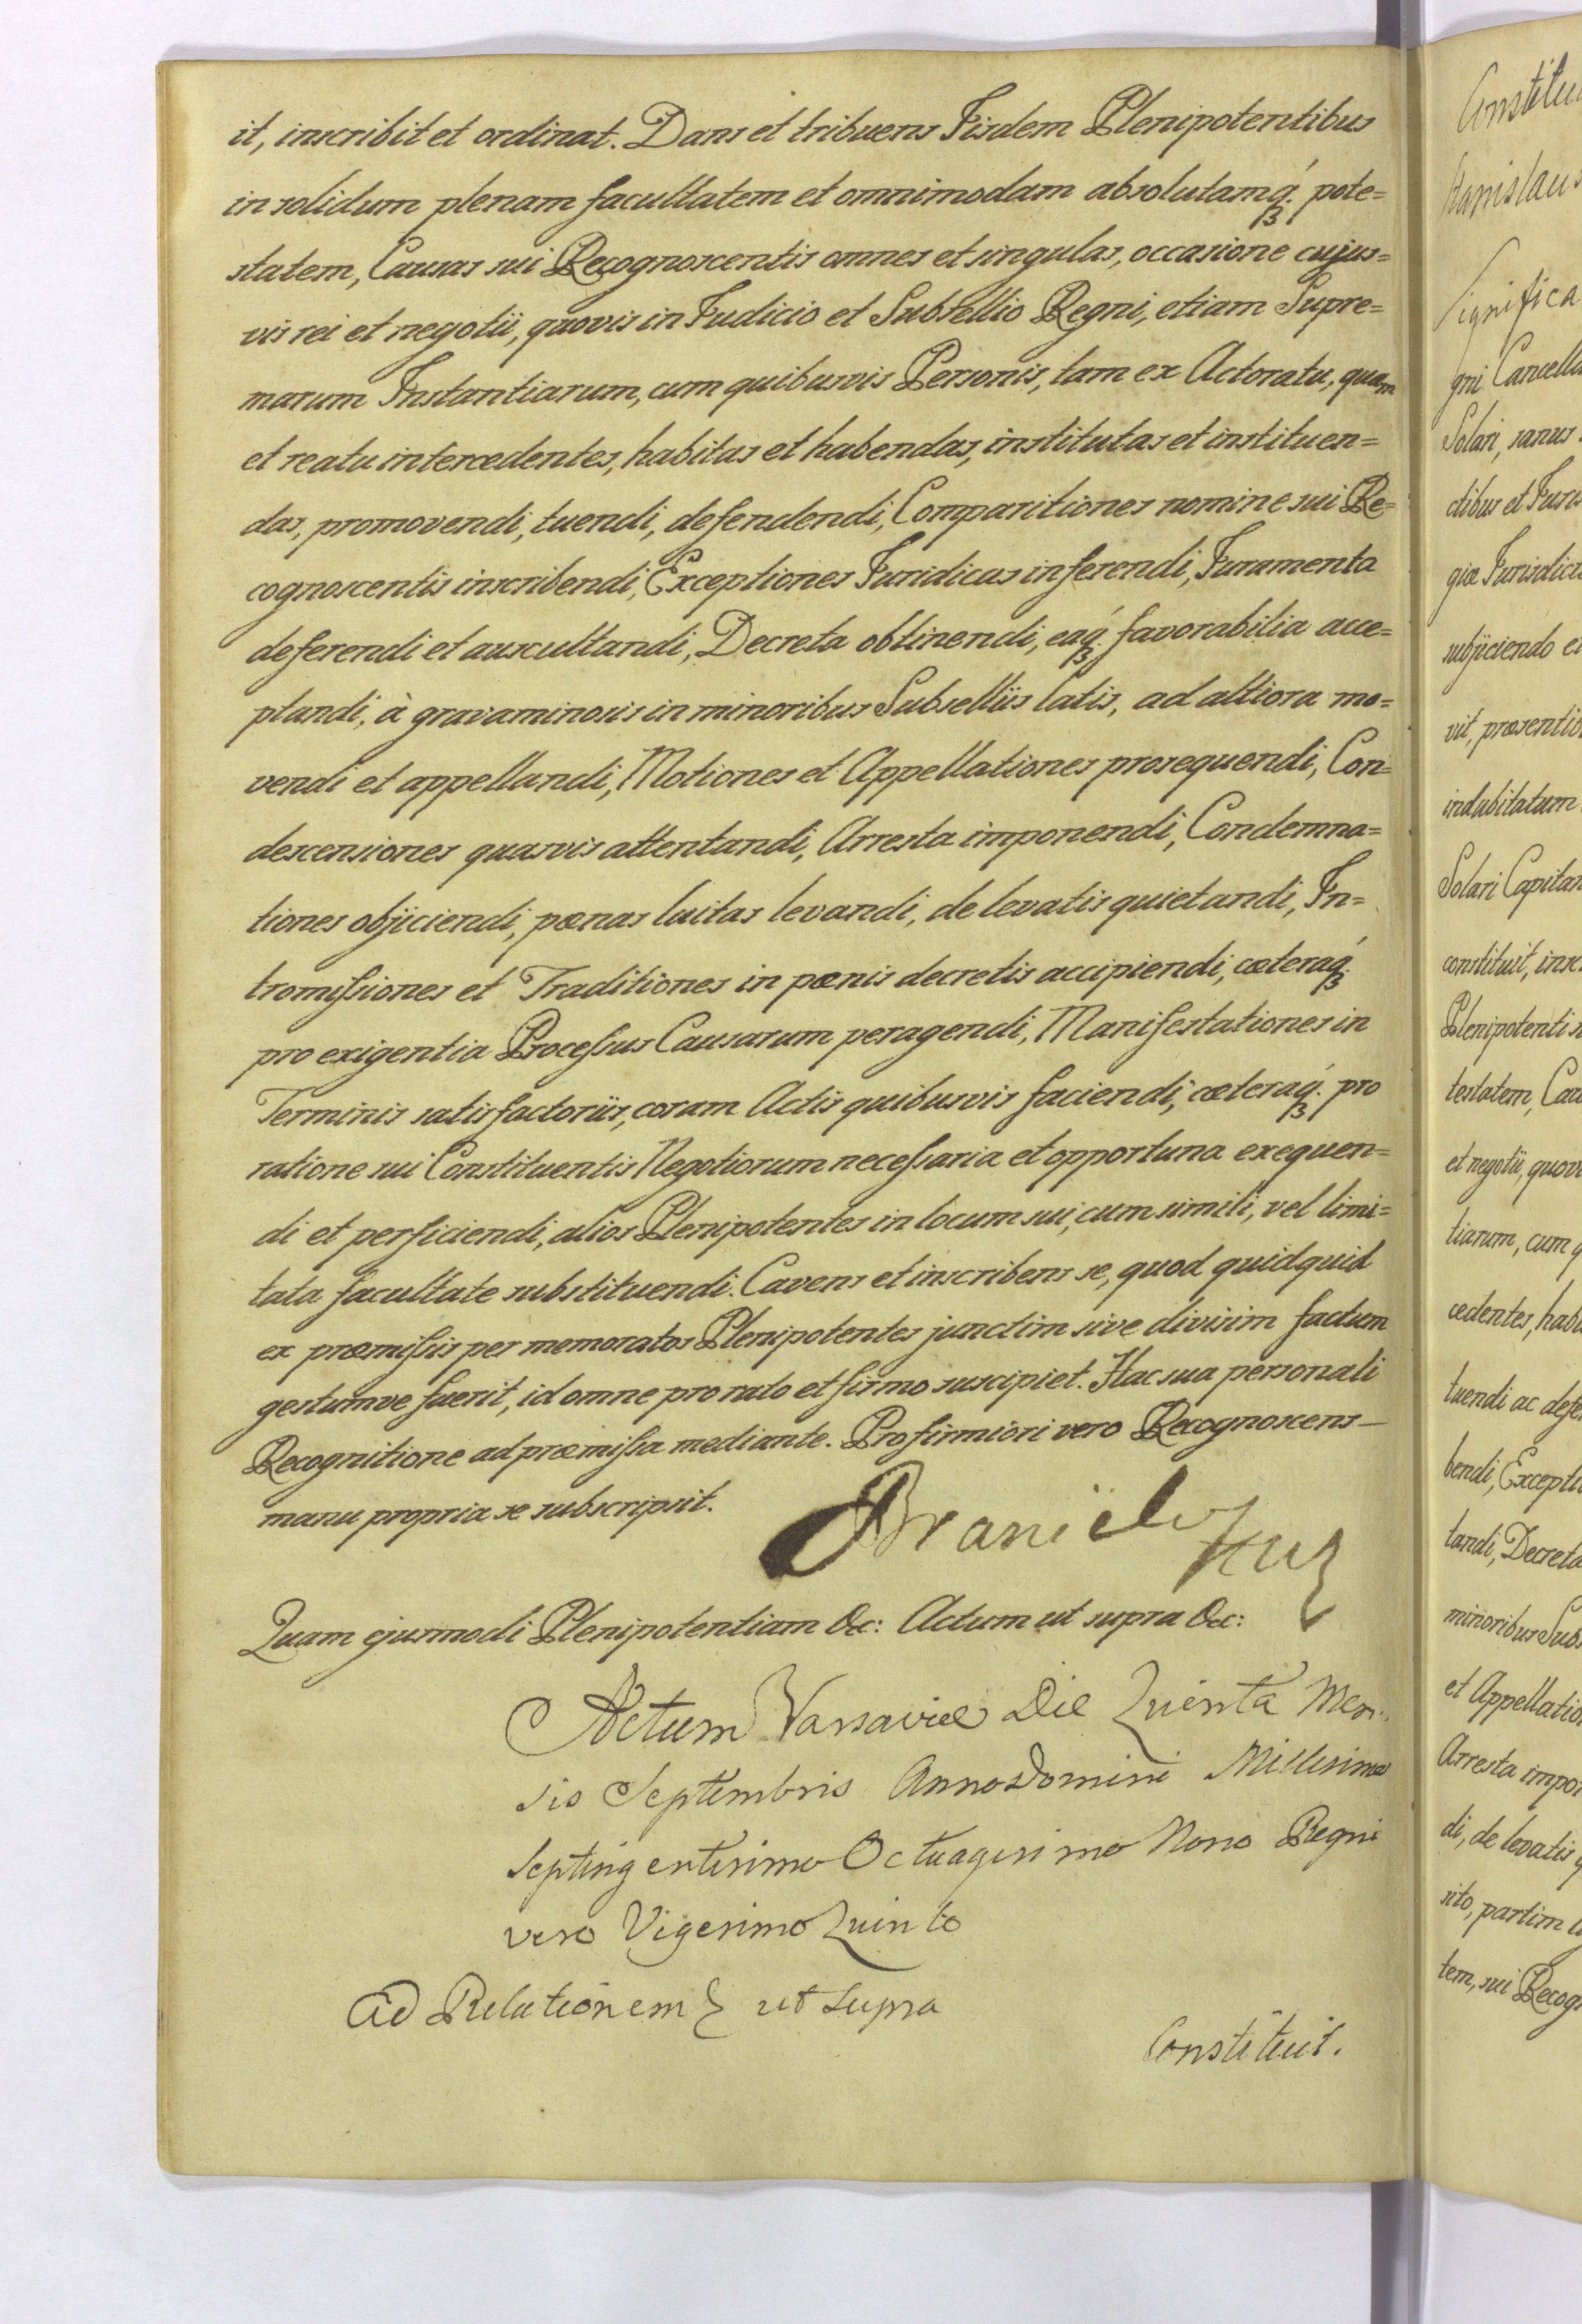 it, inscribit et ordinat. Dans et tribuens Iisdem Plenipotentibus
in solidum plenam facultatem et omnimodam absolutamq́ꝫ pote=
statem, Causas sui Recognoscentis omnes et singulas, occasione cujus=
vis rei et negotii, quovis in Judicio et Subsellio Regni, etiam Supre=
marum Instantiarum, cum quibusvis Personis, tam ex Actoratu, quam
et reatu intercedentes, habitas et habendas, institutas et instituen=
das, promovendi, tuendi, defendendi, Comparitiones nomine sui Re=
cognoscentis inscribendi, Exceptiones Juridicas inferendi, Juramenta
deferendi et auscultandi, Decreta obtinendi, eaq́ꝫ favorabilia acce=
ptandi, à gravaminosis in minoribus Subselliis latis, ad altiora mo=
vendi et appellandi, Motiones et Appellationes prosequendi, Con=
descensiones quasvis attentandi, Arresta imponendi, Condemna=
tiones objiciendi, pœnas luitas levandi, de levatis quietandi, In=
tromiſsiones et Traditiones in pœnis decretis accipiendi, cæteraq́ꝫ
pro exigentia Proceſsus Causarum peragendi, Manifestationes in
Terminis satisfactoriis, coram Actis quibusvis faciendi, cæteraq́ꝫ pro
ratione sui Constituentis Negotiorum neceſsaria et opportuna exequen=
di et perficiendi, alios Plenipotentes in locum sui, cum simili, vel limi=
tata facultate substituendi. Cavens et inscribens se, quod quidquid
ex præmiſsis per memoratos Plenipotentes junctim sive divisim factum
gestumve fuerit, id omne pro rato et firmo suscipiet. Hac sua personali
Recognitione ad præmiſsa mediante. Pro firmiori vero Recognoscens—
manu propria se subscripsit.
Branicki
Quam ejusmodi Plenipotentiam &c: Actum ut supra &c:
Actum Varsaviæ Die Quinta Men=
sis Septembris Anno Domini Millesimo
Septingentesimo Octuagesimo Nono Regni
vero Vigesimo Quinto
Ad Relationem ut supra
Constituit.
Stanislaus
Significa
gni Cancella
Solari, sanus
ctibus et Juris
giæ Jurisdicti
subjiciendo et
vit, præsentib
indubitatum
Solari Capitan
constituit, insc
Plenipotenti s
testatem, Cau
et negotii, quovi
tiarum, cum q
cedentes, habi
tuendi ac defe
bendi, Excepti
tandi, Decreta
minoribus Subs
et Appellatio
Arresta impon
di, de levatis q
sito, partim
tem, sui Recog